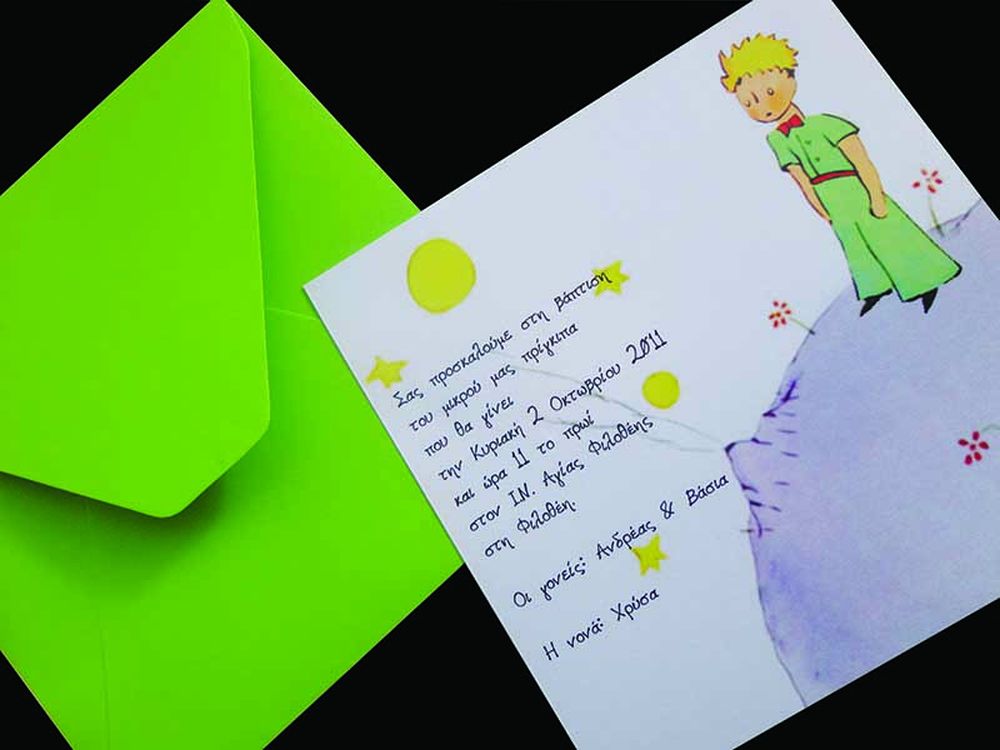 Σας προσκαλούμε στη βάπτιση
του μικρού μας πρίγκιπα
που θα γίνει
την Κυριακή 2 Οκτωβρίου 2011
και ώρα 11 το πρωί
στον Ι.Ν. Αγίας Φιλοθέης
στη Φιλοθέη.
Οι γονείς: Ανδρέας & Βάσια
Η νονά: Χρύσα